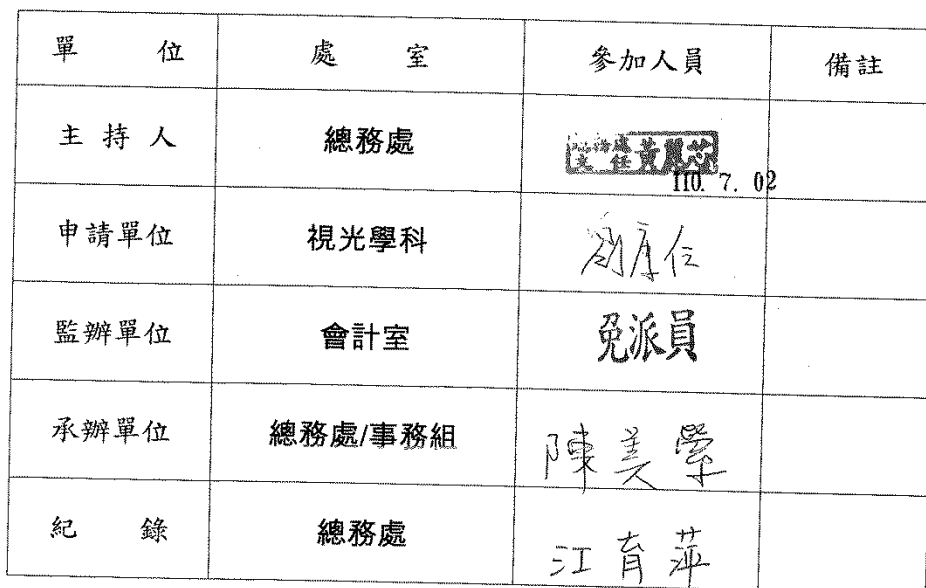 單 位 處 室 參加人員 備註
主 持 人 總務處 總務處主任 黃麗芯
110. 7. 02
申請單位 視光學科
監辦單位 會計室 免派員
承辦單位 總務處/事務組 陳美
紀 錄 總務處 江育萍